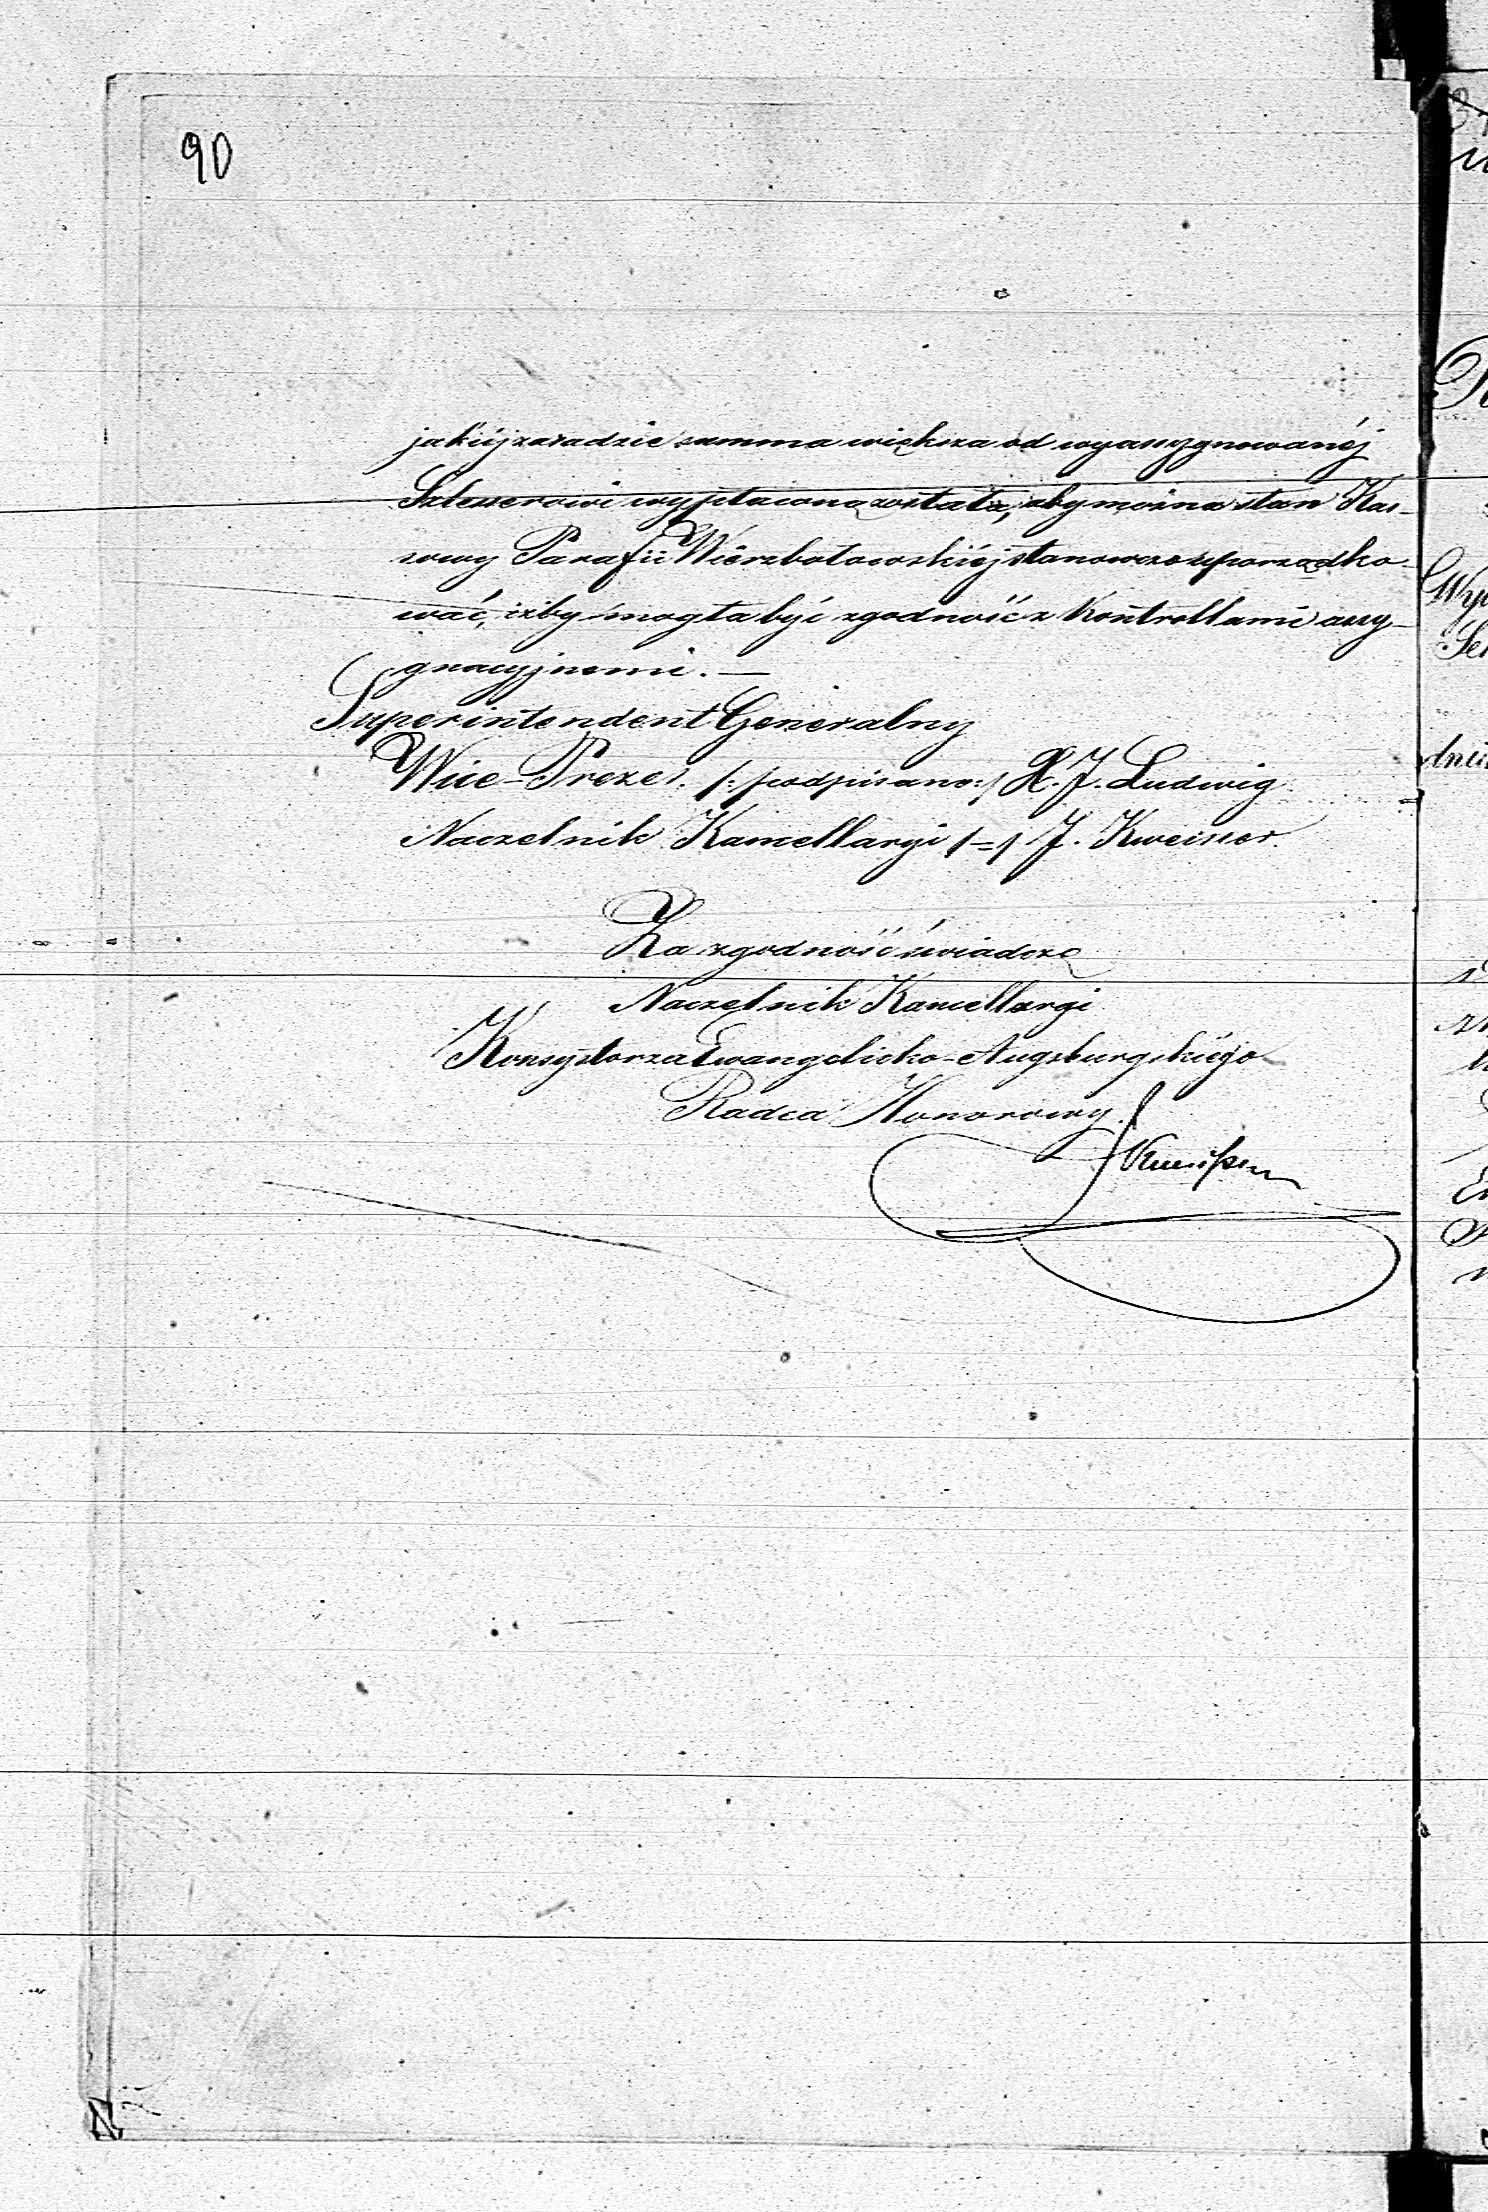 90
jakiéj zasadzie summa większa od wyassygnowanéj
Szlesserowi wypłacona została, aby można stan Kas-
sowy Parafii Wierzbołowskiéj stanowczo uporządko-
wać, iżby mogła być zgodność z Kontrollami assy-
gnacyjnemi. —
Superintendent Generalny
Wice-Prezes. /: podpisano :/ X. J. Ludwig.
Naczelnik Kancellaryi /=/ J. Kweisser.
Za zgodność świadczę
Naczelnik Kancellaryi
Konsystorza Ewangelicko-Augsburgskiégo
Radca Honorowy.